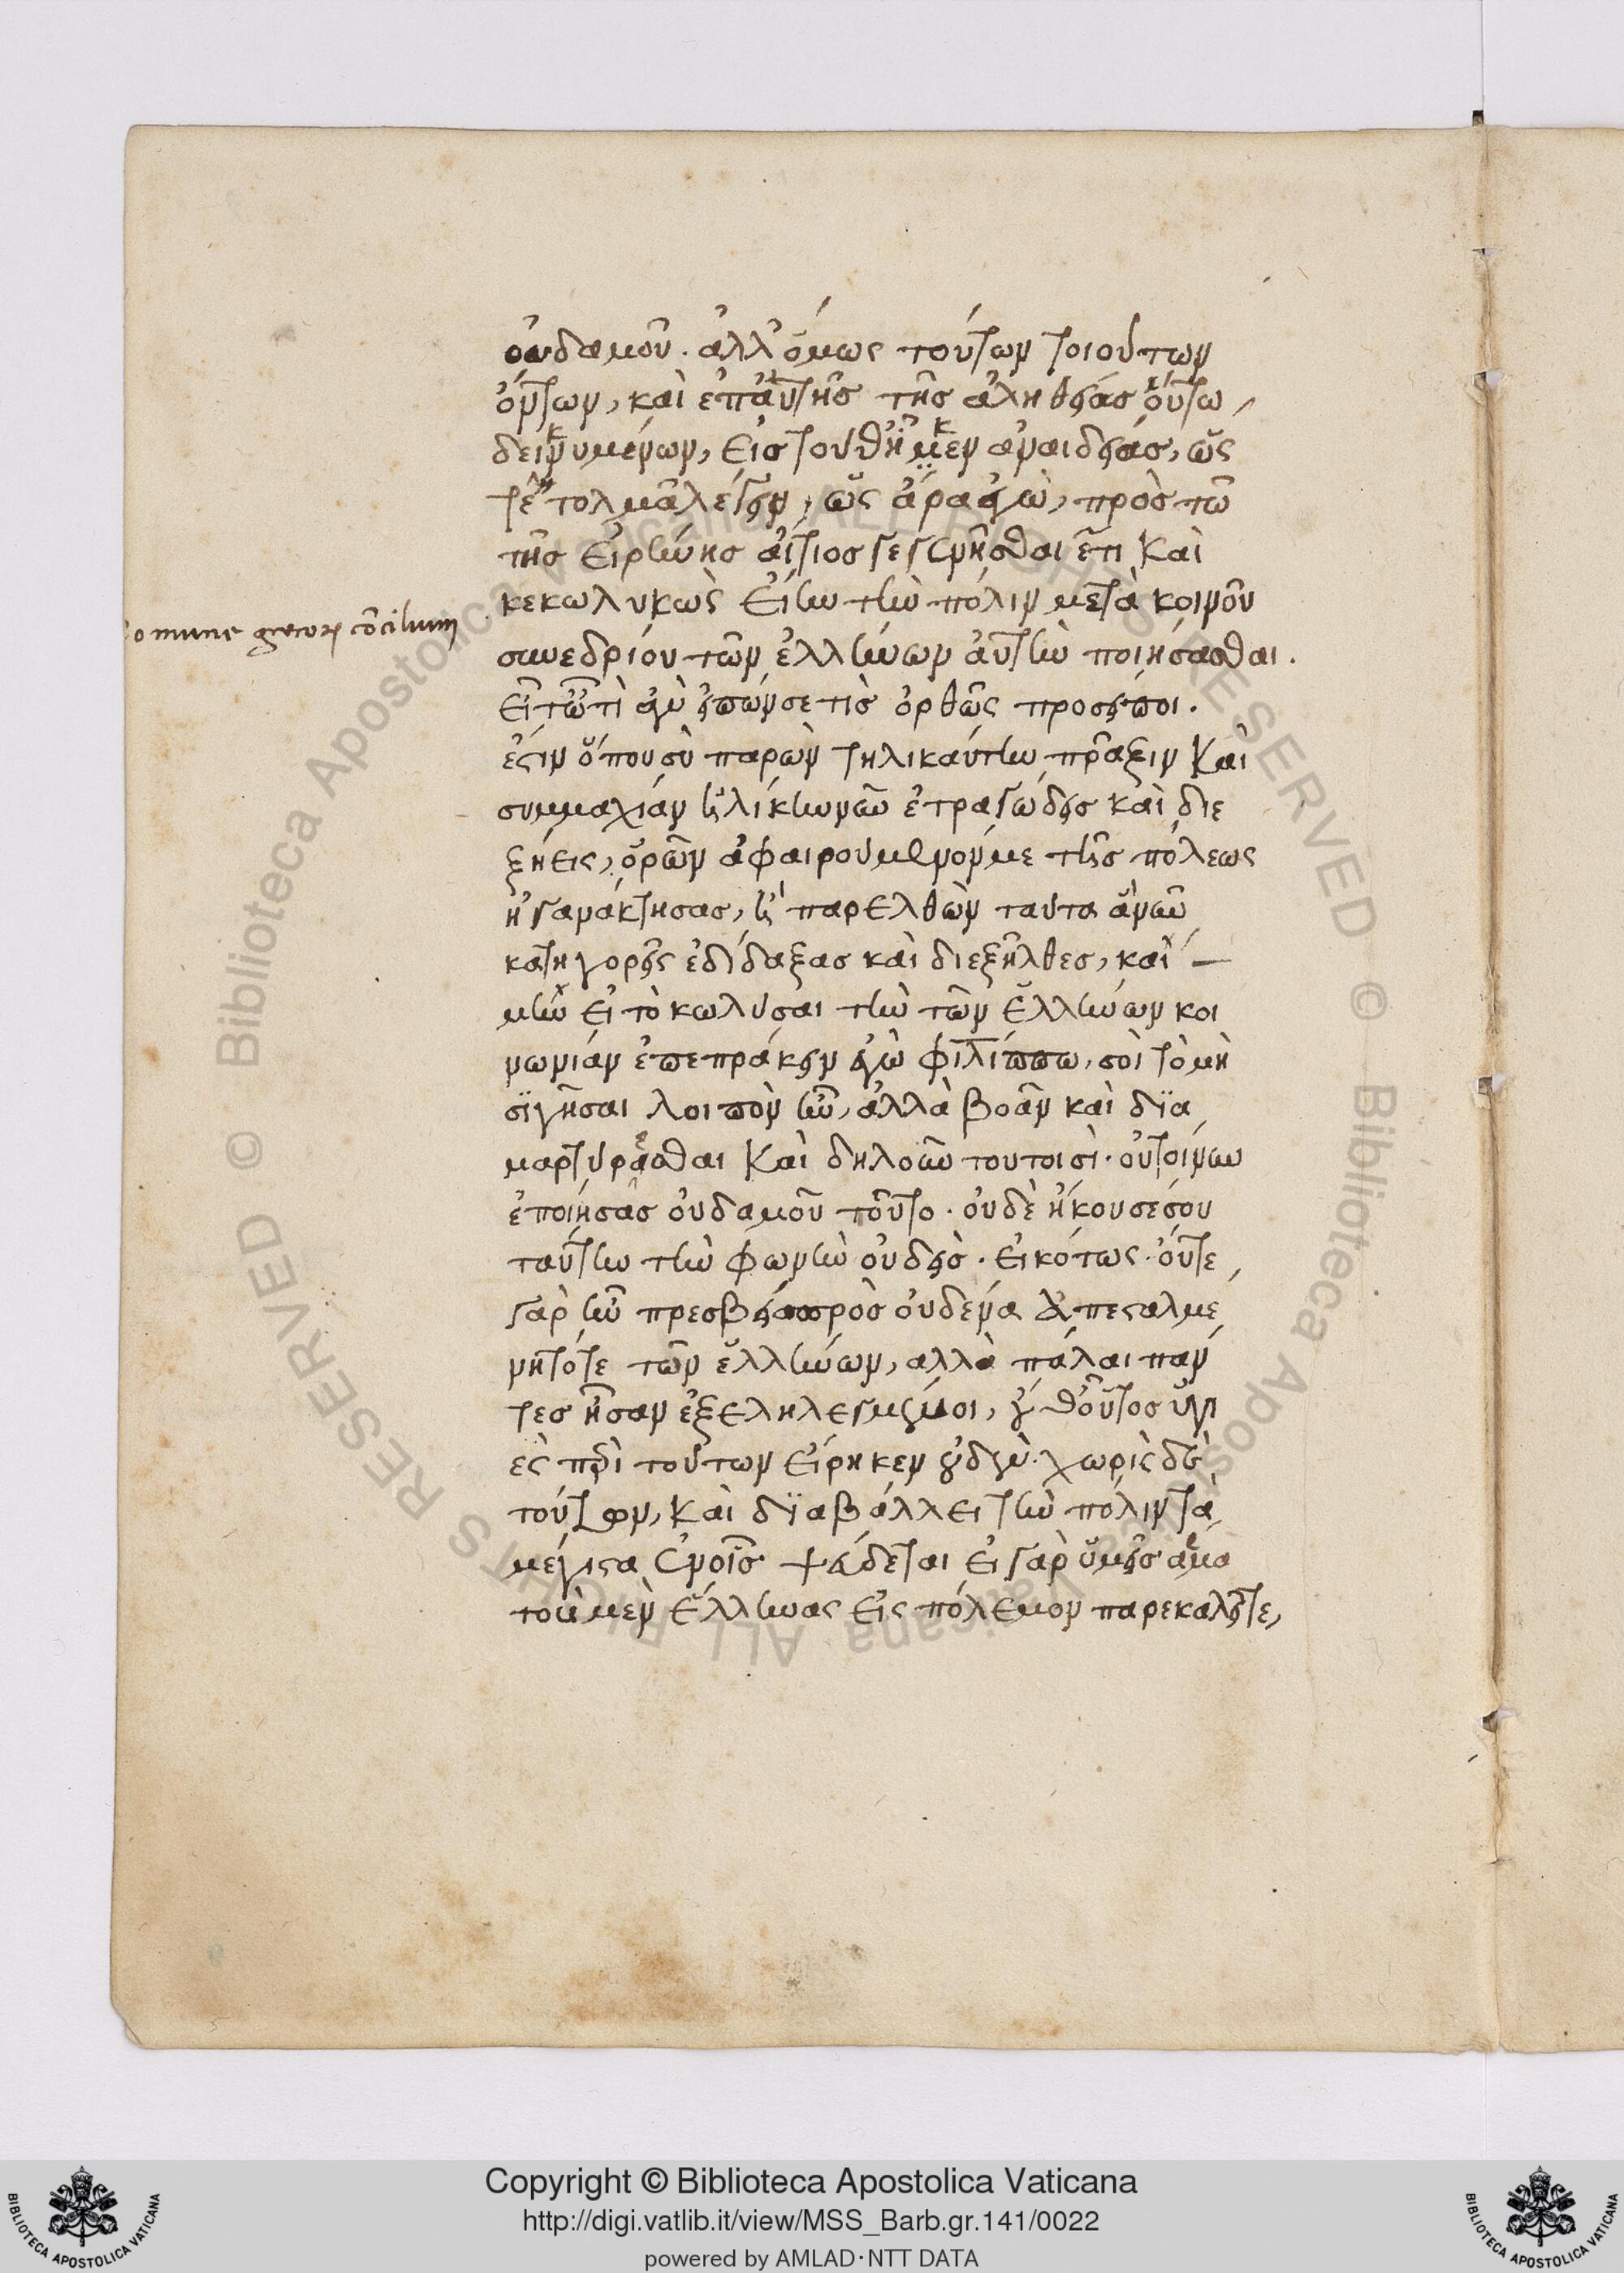 οὐδαμοῦ. ἀλλ' ὅμως τούτων τοιούτων
ὄντων, καὶ ἐπ' αὐτῆς τῆς ἀληθείας οὕτω
δεικνυμένων, εἰς τοῦθ' ἧκεν ἀναιδείας, ὥς
τ' ἐτόλμα λέγειν, ὡς ἄρα ἐγὼ, πρὸς τῶ
τῆς εἰρήνης αἴτιος γεγενῆσθαι ἔτι καὶ
κεκωλυκὼς εἴην τὴν πόλιν μετὰ κοινοῦ
comune grecorum concilium
συνεδρίου τῶν ἑλλήνων αὐτὴν ποιήσασθαι.
εἶτ' ὦ τὶ ἂν εἰπών σέ τις ὀρθῶς προσείποι.
ἔστιν ὅπου σὺ παρὼν τηλικαύτην πρᾶξιν καὶ
συμμαχίαν ἡλίκην νῦν ἐτραγώδεις καὶ διε
ξήεις, ὁρῶν ἀφαιρούμενόν με τῆς πόλεως
ἠγανάκτησας, ἢ παρελθὼν ταῦτα ἃ νῦν
κατηγορεῖς ἐδίδαξας καὶ διεξῆλθες, καὶ
μὴν εἰ τὸ κωλῦσαι τὴν τῶν ἑλλήνων κοι
νωνίαν ἐπεπράκειν ἐγὼ φιλίππω, σοὶ τὸ μὴ
σϊγῆσαι λοιπὸν ἦν, ἀλλὰ βοᾶν καὶ δϊα
μαρτύρεσθαι καὶ δηλοῦν τουτοισί. οὐ τοίνυν
ἐποίησας οὐδαμοῦ τοῦτο. οὐδὲ ἤκουσέ σου
ταύτην τὴν φωνὴν οὐδείς. εἰκότως. οὔτε
γὰρ ἦν πρεσβεία πρὸς οὐδένα ἀπεσταλμέ
νη τότε τῶν ἑλλήνων, ἀλλὰ πάλαι πάν
τες ἦσαν ἐξεληλεγμένοι, οὔθ' οὗτος ὑγι
ὲς περὶ τούτων εἴρηκεν οὐδέν. χωρὶς δὲ
τούτων, καὶ δϊαβάλλει τὴν πόλιν τὰ
μέγιστα ἐν οἷς ψεύδεται εἰ γὰρ ὑμεῖς ἅμα
τοὺς μὲν ἕλληνας εἰς πόλεμον παρεκαλεῖτε,
Copyright © Biblioteca Apostolica Vaticana
http://digi.vatlib.it/view/MSS_Barb.gr.141/0022
powered by AMLAD·NTT DATA